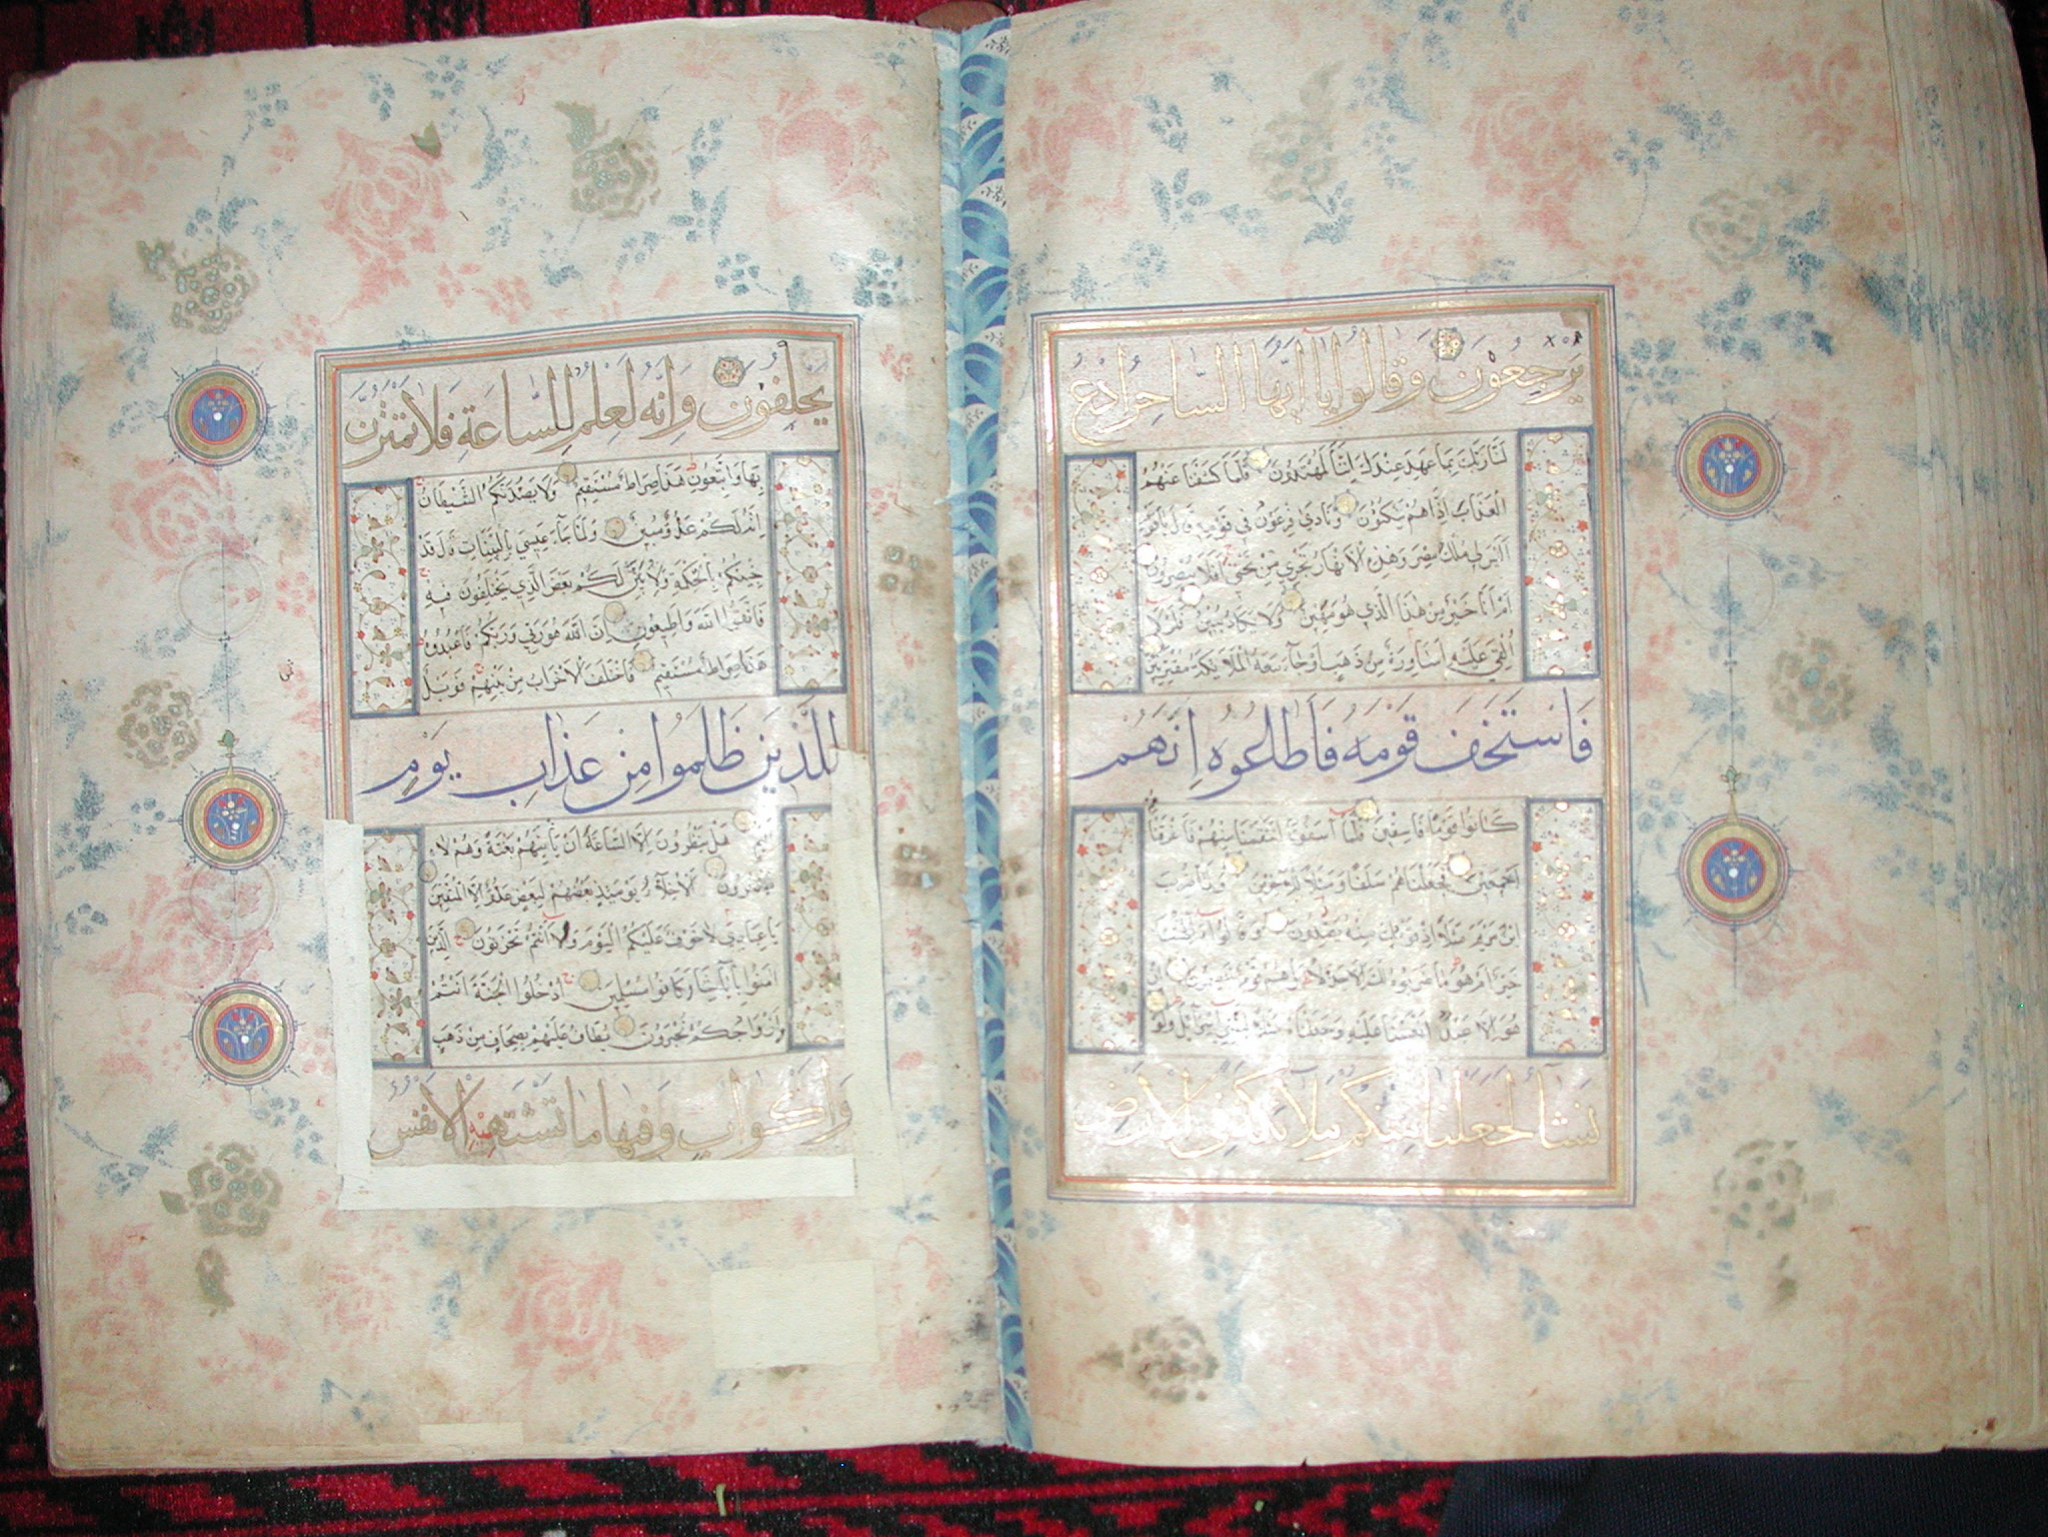 يرجعون وقالوا يا ايها الساحر ادع
لنا ربك بما عهد عندك اننا لمهتدون فلما كشفنا عنهم
العذاب اذا هم ينكثون ونادى فرعون في قومه قال يا قوم
اليس لي ملك مصر وهذه الانهار تجري من تحتي افلا تبصرون
ام انا خير من هذا الذي هو مهين ولا يكاد يبين فلولا
القي عليه اساورة من ذهب او جاء معه الملائكة مقترنين
فاستخف قومه فاطاعوه انهم
كانوا قوما فاسقين فلما آسفونا انتقمنا منهم فاغرقناهم
اجمعين فجعلناهم سلفا ومثلا للآخرين ولما ضرب
ابن مريم مثلا اذا قومك منه يصدون وقالوا أآلهتنا
خير ام هو ما ضربوه لك الا جدلا بل هم قوم خصمون ان
هو الا عبد انعمنا عليه وجعلناه مثلا لبني اسرائيل ولو
نشاء لجعلنا منكم ملائكة في الارض
يخلفون وانه لعلم للساعة فلا تمترن
بها واتبعون هذا صراط مستقيم ولا يصدنكم الشيطان
انه لكم عدو مبين ولما جاء عيسى بالبينات قال قد
جئتكم بالحكمة ولابين لكم بعض الذي تختلفون فيه
فاتقوا الله واطيعون ان الله هو ربي وربكم فاعبدوه
هذا صراط مستقيم فاختلف الاحزاب من بينهم فويل
للذين ظلموا من عذاب يوم
هل ينظرون الا الساعة ان تأتيهم بغتة وهم لا
يشعرون الاخلاء يومئذ بعضهم لبعض عدو الا المتقين
يا عبادي لا خوف عليكم اليوم ولا انتم تحزنون الذين
آمنوا بآياتنا وكانوا مسلمين ادخلوا الجنة انتم
وازواجكم تحبرون يطاف عليهم بصحاف من ذهب
واكواب وفيها ما تشتهيه الانفس